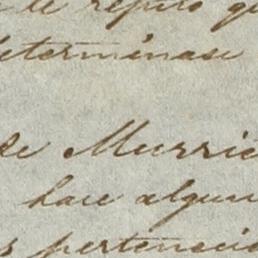 de repito q
determinase
de Murrie
hace algun
s pertenecie